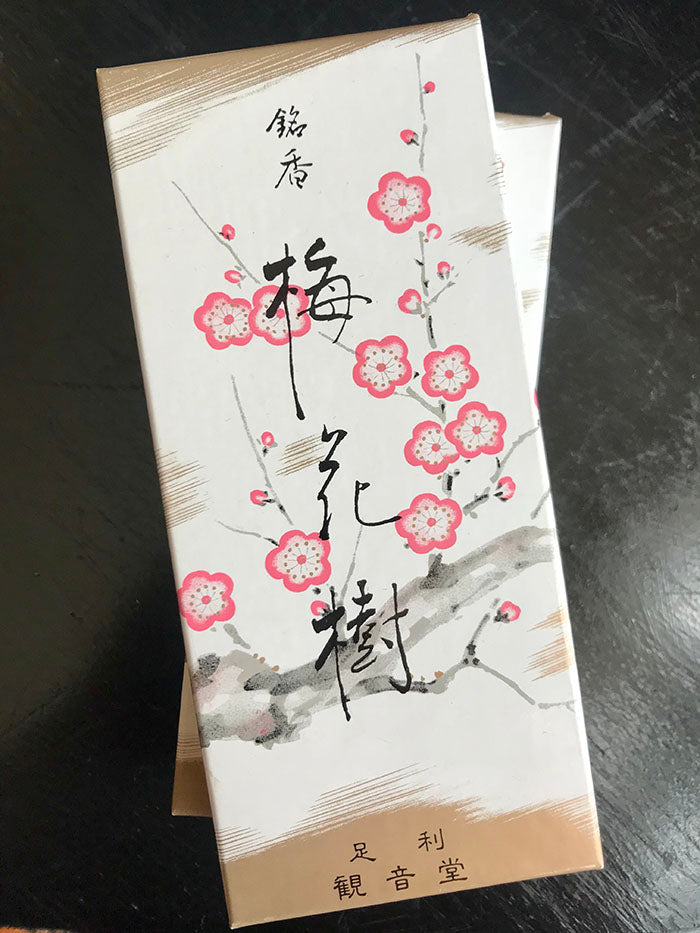 銘香
梅花樹
足利
観音堂